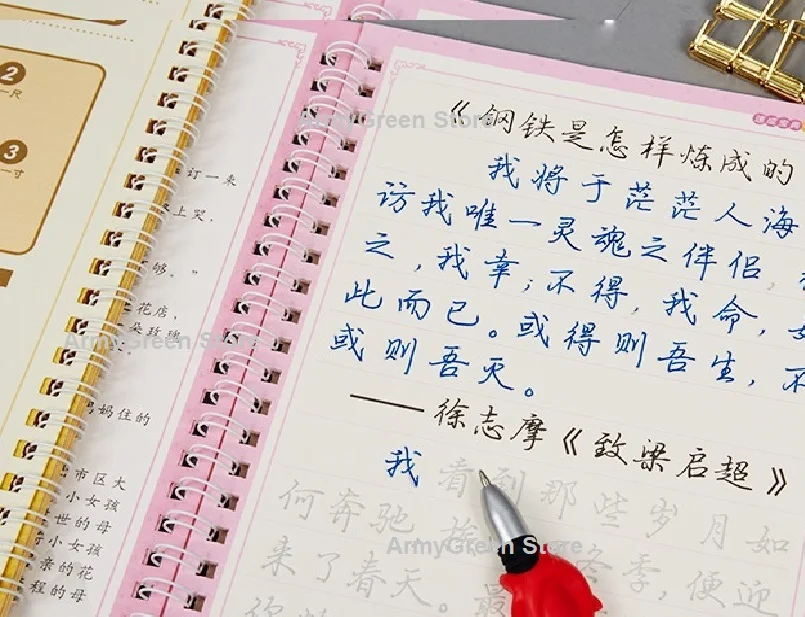 2
一尺
3
一寸
订一束
上哭,
够。”
花店,
朵玫瑰
妈妈住的
市区大
小女孩
世的母
小女孩
亲的花
程的母
《钢铁是怎样炼成的
我将于茫茫人海
访我唯一灵魂之伴侣,
之,我幸;不得,我命,
此而已。或得则吾生,不
或则吾灭。
——徐志摩《致梁启超》
我看到那些岁月如
何奔驰
来了春天。最 冬季,便迎
ArmyGreen Store
ArmyGreen Store
ArmyGreen Store